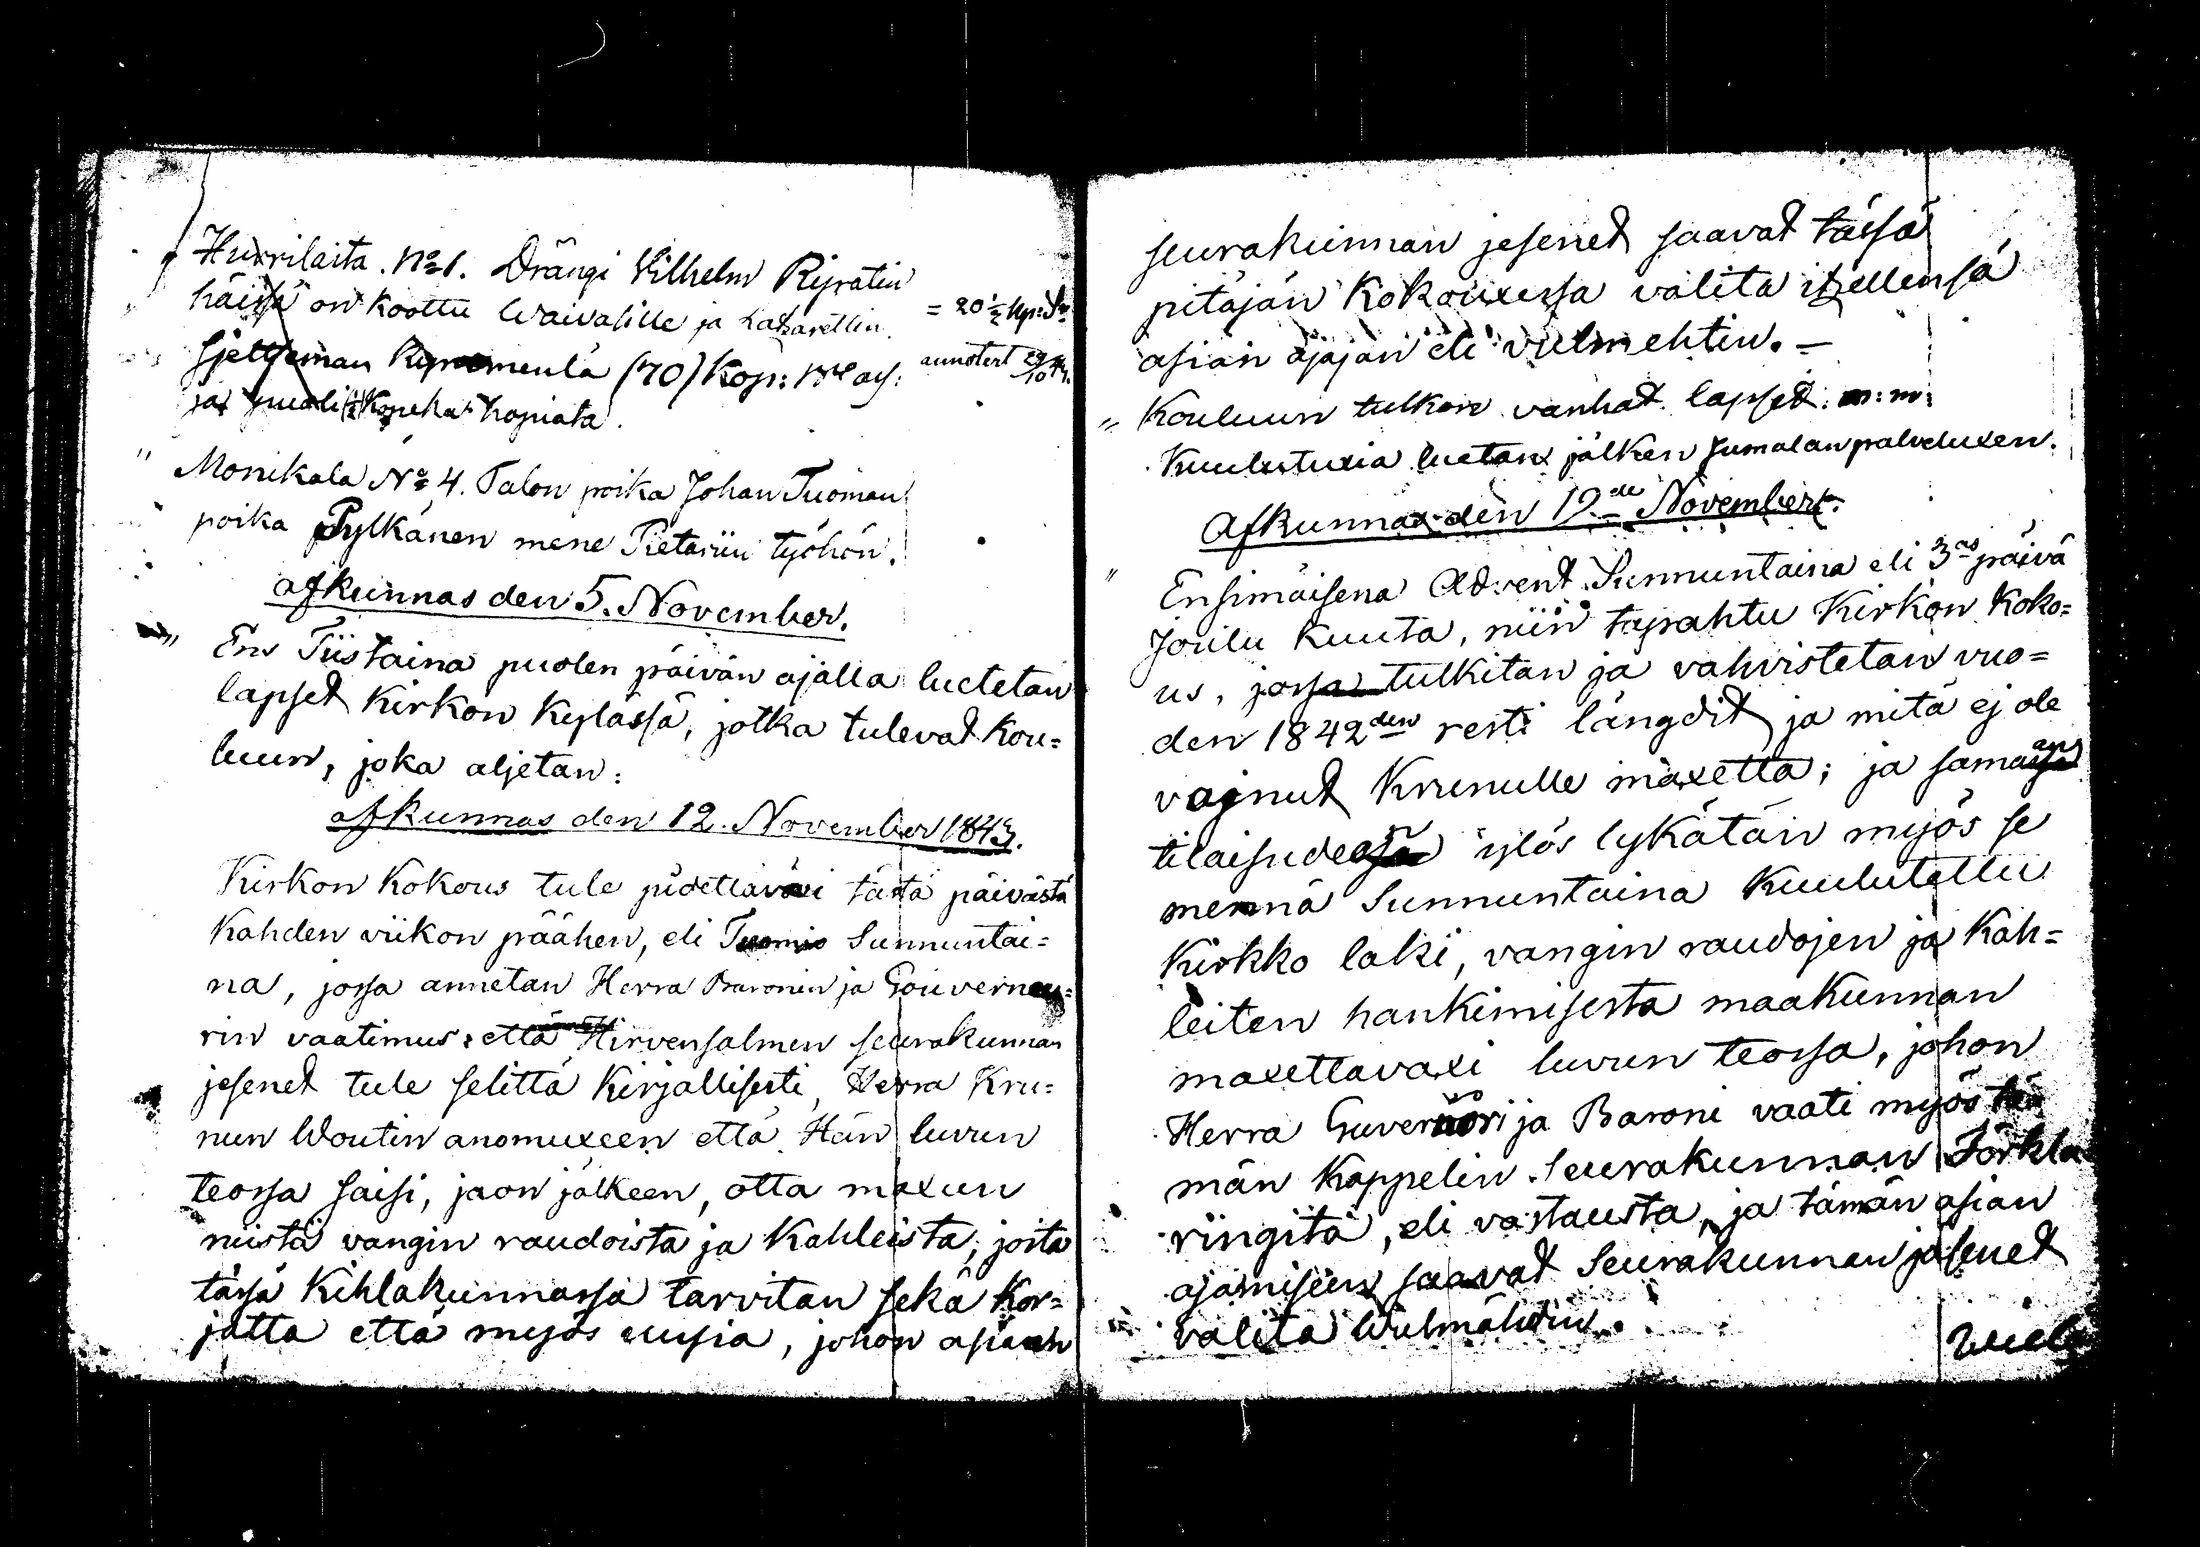 Hurrilaita. No 1. Drängi Vilhelm Ripatin
häissä on koottu Waivasille ja Latsarettiin = 20 1/2 kp: Sr
(70) Kop: annotert 29/10 43.
ja puoli kopeka hopiata.
" Monikala No 4. Talon poika Johan Tuoman
poika Pylkänen mene Pietariin työhön.
afkunnas den 5. November.
" Ens Tiistaina puolen päivän ajalla luetetan
lapset kirkon kylässä, jotka tulevat kou=
luun, joka aljetan:
afkunnas den 12. November 1843.
Kirkon kokous tule pidettäväxi tästä päivästä
kahden viikon päähen, eli Tuomio Sunnuntai=
na, jossa annetan Herra Baronin ja Gouverneu=
rin vaatimus: että Hirvensalmen seurakunnan
jesenet tule selittä kirjallisesti, Herra Kru=
nun Woutin anomuxeen että Hän luvun
teossa saisi, jaon jälkeen, otta maxun
niistä vangin raudoista ja kahleista, joita
tässä kihlakunnassa tarvitan sekä kor=
jatta että myös uusia, johon asiaan
seurakunnan jesenet saavat tässä
pitäjän kokouxessa valita itzellensä
asian ajajan eli vulmehtin. —
" Kouluun tulkon vanhat lapset. m: m:
Kuulutuxia luetan jälken Jumalan palveluxen.
Afkunnas den 19de November.
" Ensimäisena Advent Sunnuntaina eli 3as päivä
Joulu kuuta, niin tapahtu Kirkon koko=
us, jossa tulkitan ja vahvistetan vuo=
den 1842den resti längdit ja mitä ej ole
vojnut Krunulle maxetta; ja samassa
tilaisudesa ylös lykätän myös se
mennä Sunnuntaina kuulutettu
Kirkko laki, vangin raudojen ja kah=
leiten hankimisesta maakunnan
maxettavaxi luvun teossa, johon
Herra Guvernöri ja Baroni vaati myös tä
män kappelin seurakunnan Förkla
ringitä, eli vastausta, ja tämän asian
ajamiseen saavat Seurakunnan jäsenet
valita Wulmähtin.
Wielä